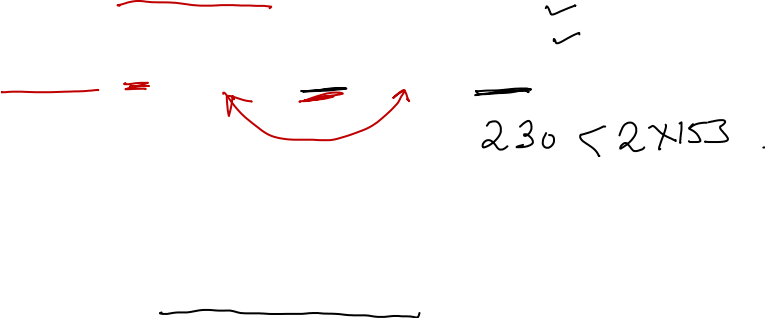 230 < 2×153